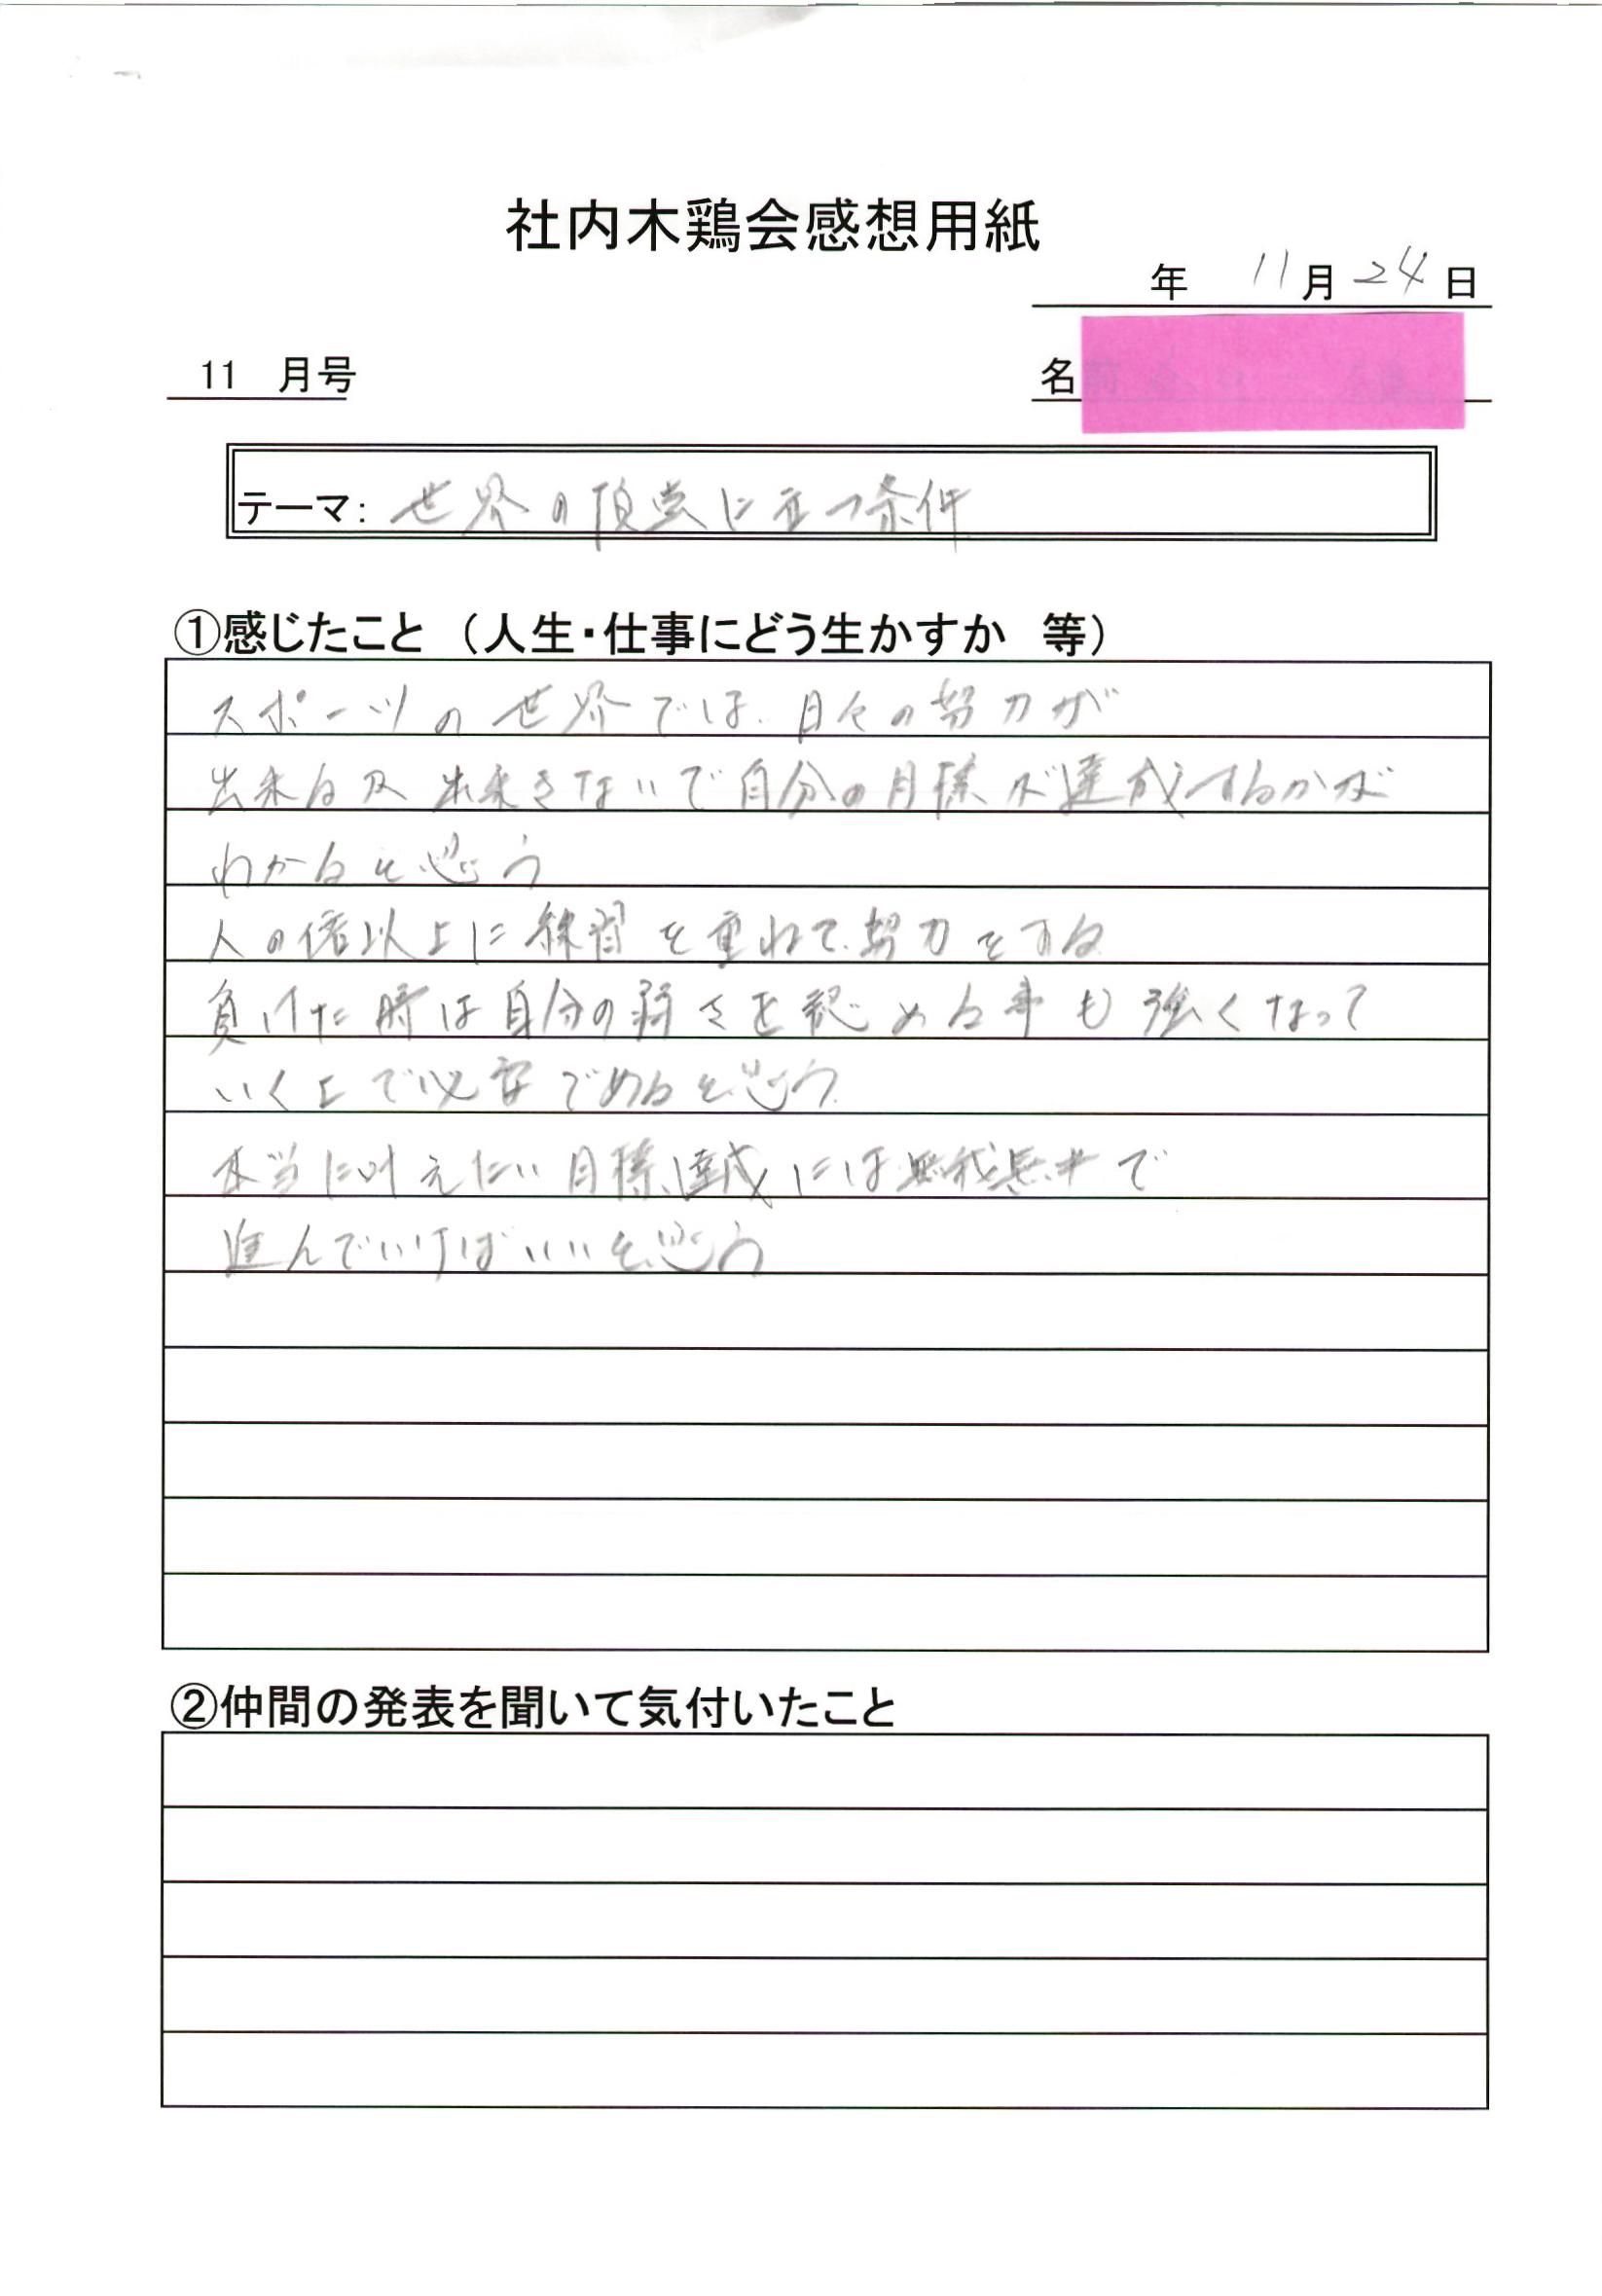 社内木鶏会感想用紙
年 11月24日
11 月号
名
テーマ: 世界の頂点に立つ条件
①感じたこと (人生・仕事にどう生かすか 等)
スポーツの世界では、日々の努力が
出来る 出来きないで自分の目標が達成するかが
わかると思う
人の倍以上に練習を重ねて、努力をする
負けた時は自分の弱さを認める事も強くなって
いく上で必要であると思う
本当に叶えたい目標、達成には無我夢中で
進んでいけばいいと思う
②仲間の発表を聞いて気付いたこと